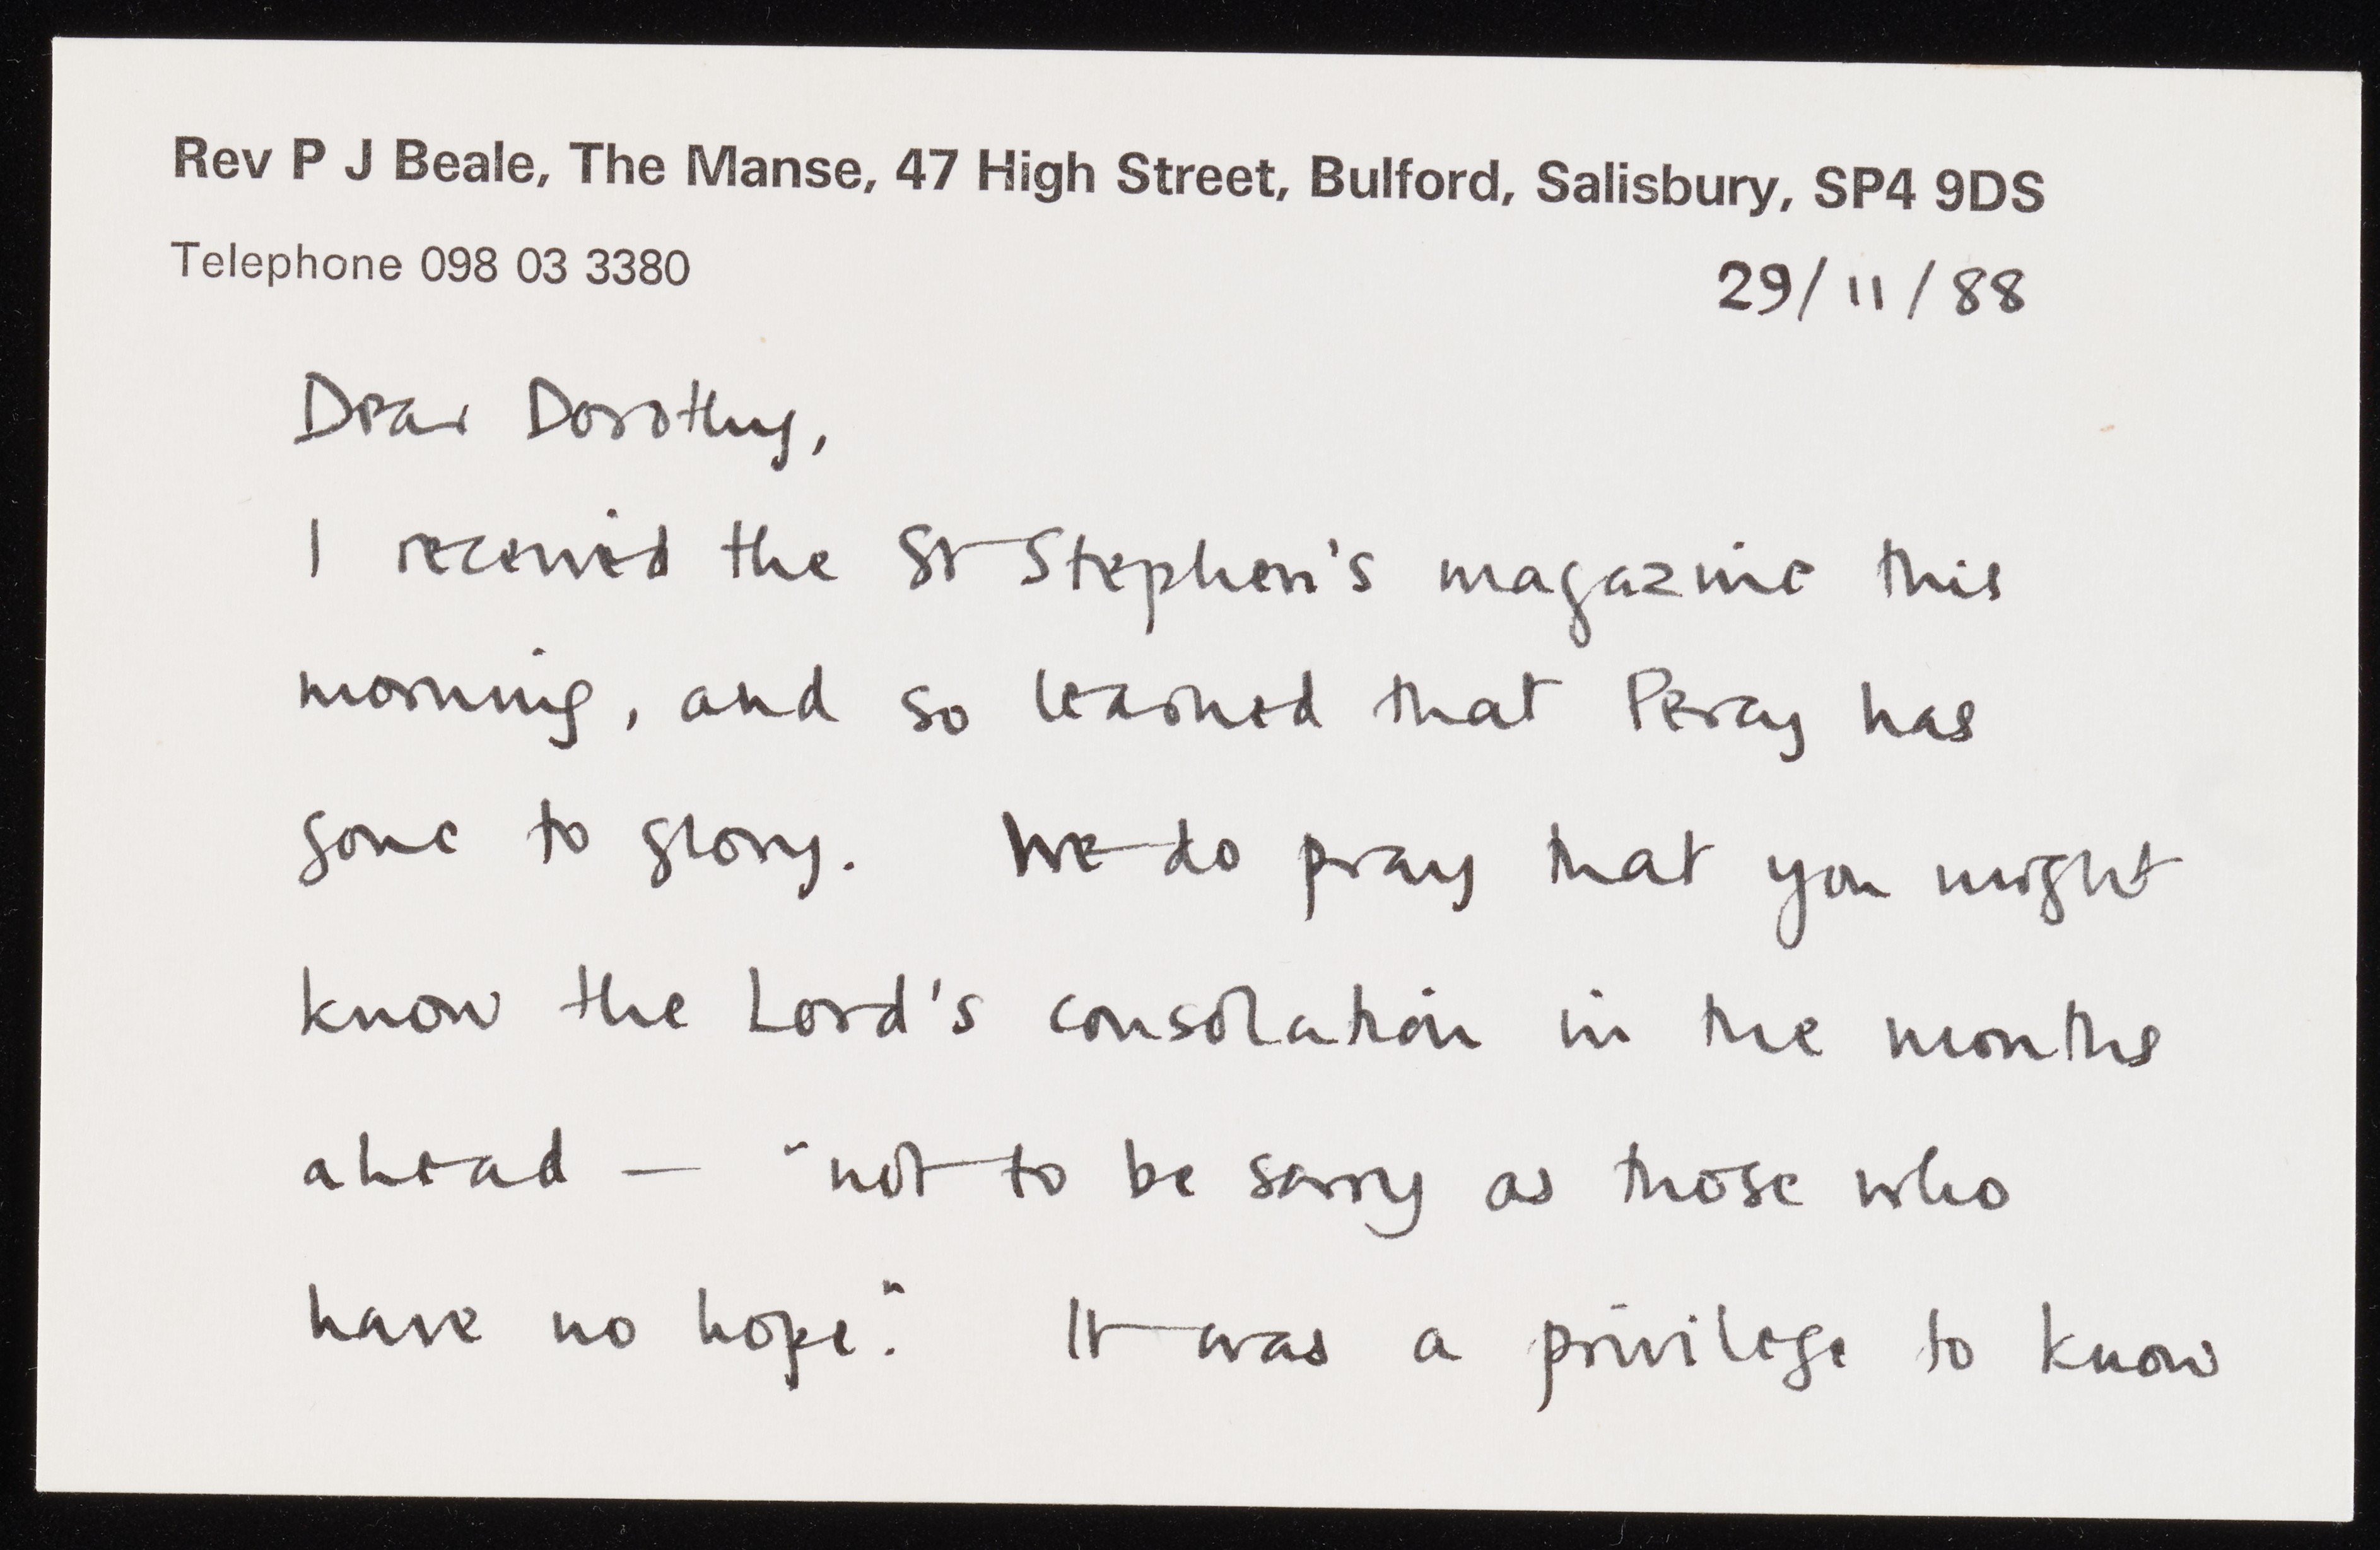 Rev P J Beale, The Manse, 47 High Street, Bulford, Salisbury, SP4 9DS
Telephone 098 03 3380
29/11/88
Dear Dorothy,
I received the St Stephen's magazine this
morning, and so learned that Percy has
gone to glory. We do pray that you might
know the Lord's consolation in the months
ahead — "not to be sorry as those who
have no hope." It was a privilege to know